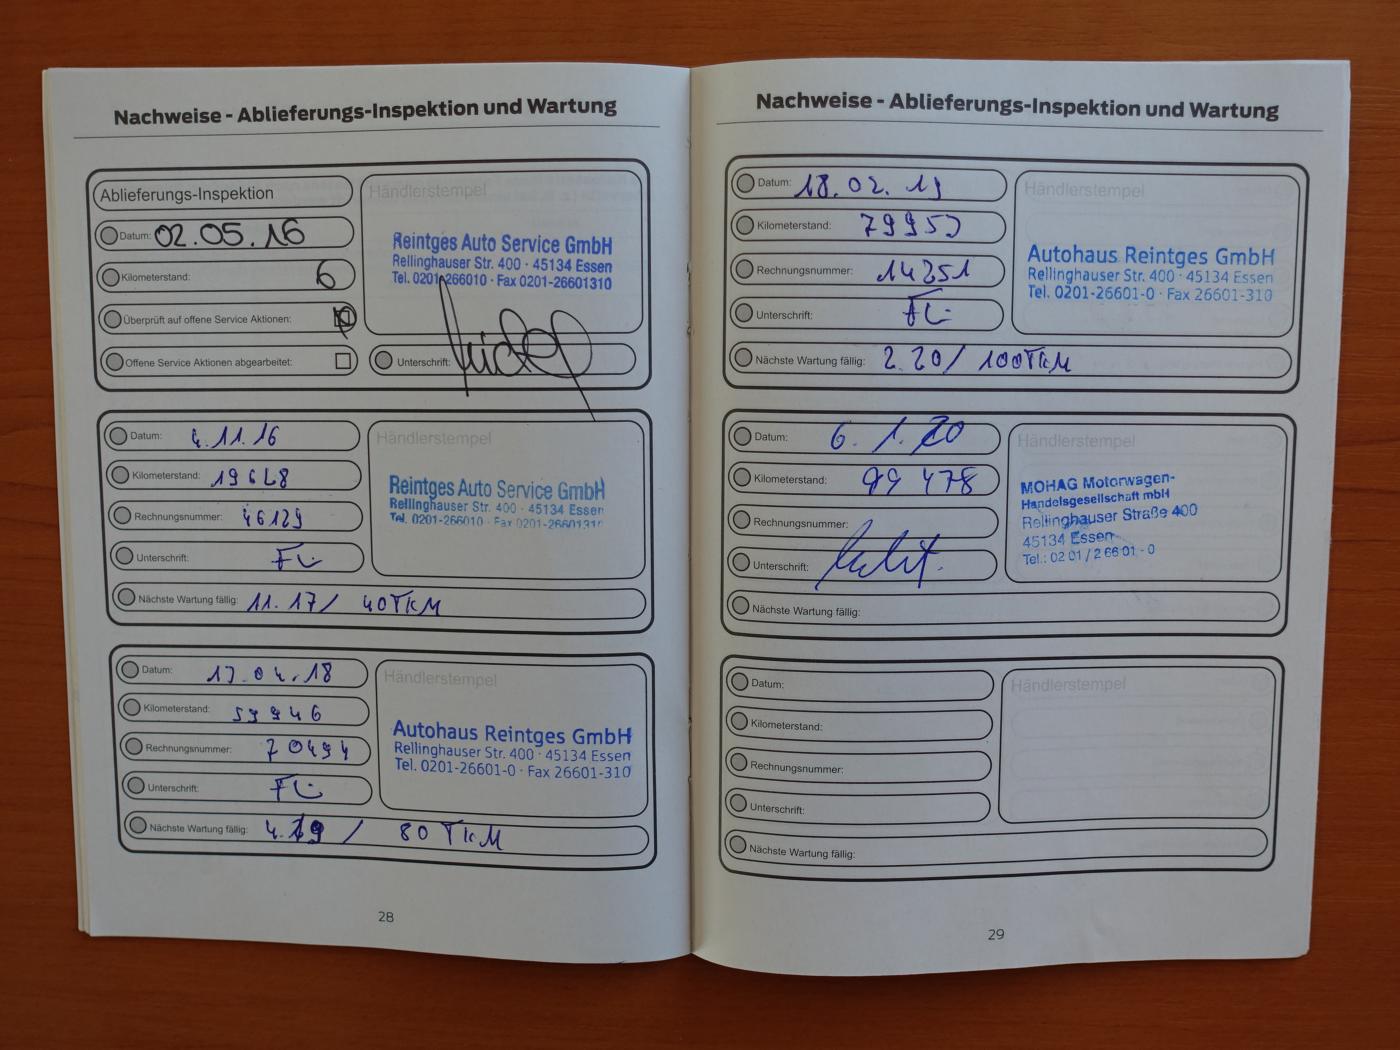 Nachweise - Ablieferungs-Inspektion und Wartung
Ablieferungs-Inspektion
Datum: 02.05.16
Kilometerstand: 6
Überprüft auf offene Service Aktionen:
Offene Service Aktionen abgearbeitet:
Händlerstempel
Reintges Auto Service GmbH
Rellinghauser Str. 400 · 45134 Essen
Tel. 0201-266010 · Fax 0201-26601310
Unterschrift:
Datum: 4.11.16
Kilometerstand: 19628
Rechnungsnummer: 46129
Unterschrift:
Nächste Wartung fällig: 11.17/ 40TKM
Händlerstempel
Reintges Auto Service GmbH
Rellinghauser Str. 400 · 45134 Essen
Tel. 0201-266010 · Fax 0201-26601310
Datum: 17.04.18
Kilometerstand: 59946
Rechnungsnummer: 70494
Unterschrift:
Nächste Wartung fällig: 4.19 / 80 TKM
Händlerstempel
Autohaus Reintges GmbH
Rellinghauser Str. 400 · 45134 Essen
Tel. 0201-26601-0 · Fax 26601-310
28
Nachweise - Ablieferungs-Inspektion und Wartung
Datum: 18.02.19
Kilometerstand: 79957
Rechnungsnummer: 14251
Unterschrift:
Nächste Wartung fällig: 2.20/ 100TKM
Händlerstempel
Autohaus Reintges GmbH
Rellinghauser Str. 400 · 45134 Essen
Tel. 0201-26601-0 · Fax 26601-310
Datum: 6.1.20
Kilometerstand: 99 478
Rechnungsnummer:
Unterschrift:
Nächste Wartung fällig:
Händlerstempel
MOHAG Motorwagen-
Handelsgesellschaft mbH
Rellinghauser Straße 400
45134 Essen
Tel.: 02 01 / 2 66 01 - 0
Datum:
Kilometerstand:
Rechnungsnummer:
Unterschrift:
Nächste Wartung fällig:
Händlerstempel
29